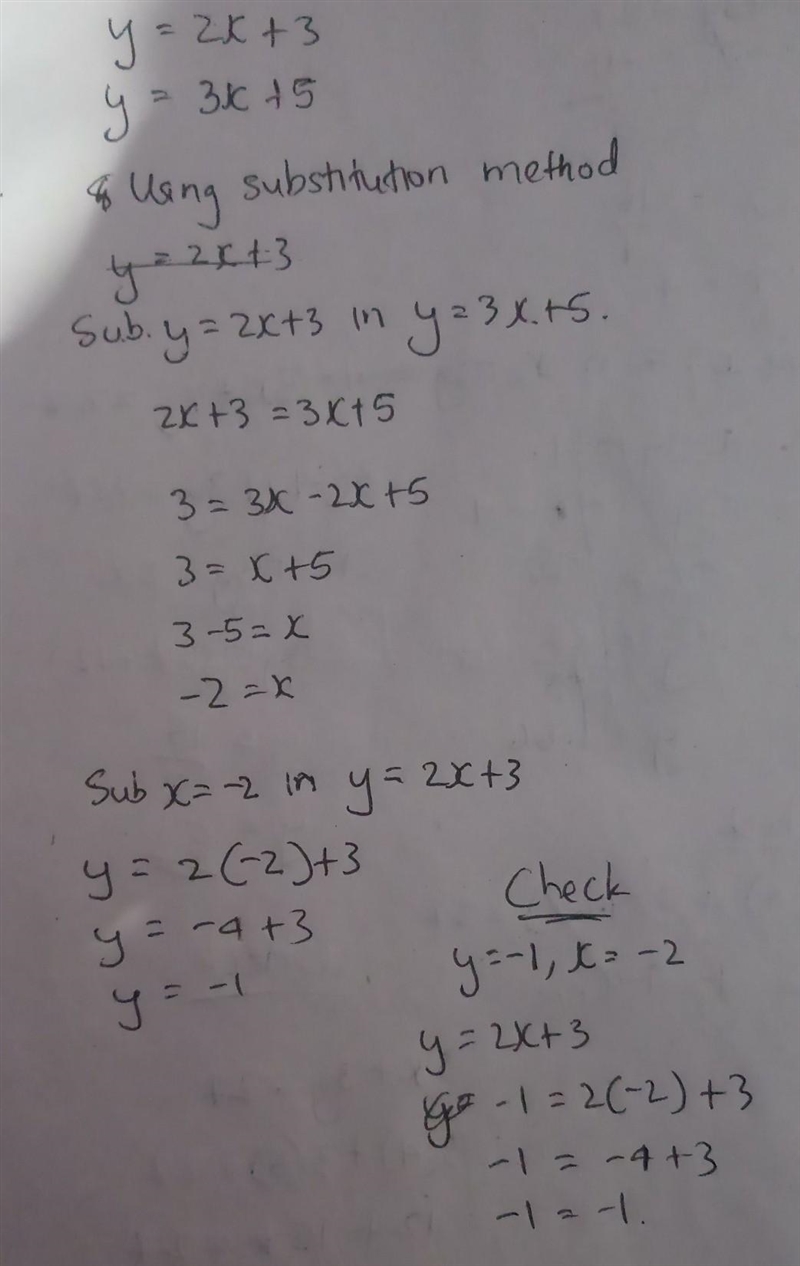 y = 2x + 3
y = 3x + 5
Using substitution method
y = 2x + 3
Sub. y = 2x+3 in y = 3x + 5.
2x + 3 = 3x + 5
3 = 3x - 2x + 5
3 = x + 5
3 - 5 = x
-2 = x
Sub x = -2 in y = 2x + 3
y = 2(-2) + 3
y = -4 + 3
y = -1
Check
y = -1, x = -2
y = 2x + 3
-1 = 2(-2) + 3
-1 = -4 + 3
-1 = -1.